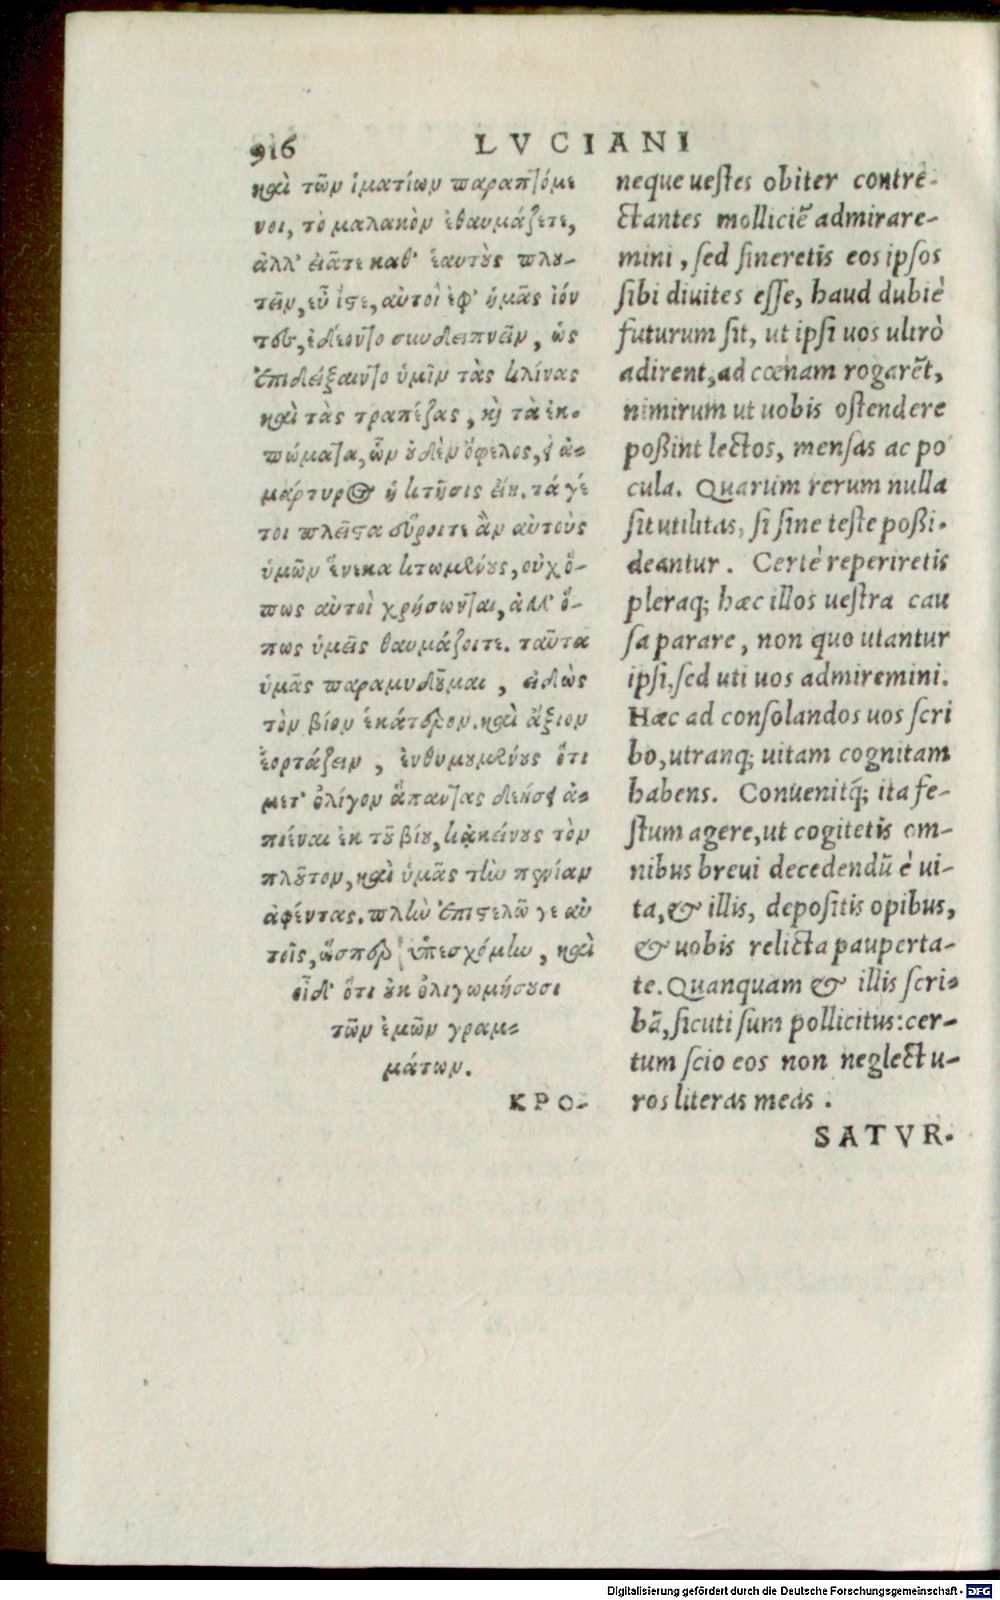 916 LVCIANI
καὶ τῶν ἱματίων παραπτόμε
νοι, τὸ μαλακὸν ἐθαυμάζετε,
ἀλλ' εἰᾶτε καθ' ἑαυτοὺς πλου-
τεῖν, εὖ ἴστε, αὐτοὶ ἐφ' ἡμᾶς ἰόν
τες, ἐδέοντο συνδειπνεῖν, ὡς
ἐπιδείξαιντο ὑμῖν τὰς κλίνας
καὶ τὰς τραπέζας, κὶ τὰ ἐκ-
πώματα, ὧν οὐδὲν ὄφελος, εἰ ἀ-
μάρτυρος ἡ κτῆσις εἴη. τά γέ
τοι πλεῖστα εὕροιτε ἂν αὐτοὺς
ὑμῶν ἕνεκα κτωμένους, οὐχ ὅ-
πως αὐτοὶ χρήσωνται, ἀλλ' ὅ-
πως ὑμεῖς θαυμάζοιτε. ταῦτα
ὑμᾶς παραμυθοῦμαι, εἰδὼς
τὸν βίον ἑκάτερον. καὶ ἄξιον
ἑορτάζειν, ἐνθυμουμένους ὅτι
μετ' ὀλίγον ἅπαντας δεήσει ἀ-
πιέναι ἐκ τοῦ βίου, κἀκείνους τὸν
πλοῦτον, καὶ ὑμᾶς τὴν πενίαν
ἀφέντας. πλὴν ἐπιστελῶ γε αὐ
τοῖς, ὥσπερ ὑπεσχόμην, καὶ
οἶδ' ὅτι οὐκ ὀλιγωρήσουσι
τῶν ἐμῶν γραμ-
μάτων.
ΚΡΟ-
neque uestes obiter contre-
ctantes molliciẽ admirare-
mini, sed sineretis eos ipsos
sibi diuites esse, haud dubiè
futurum sit, ut ipsi uos ultrò
adirent, ad cœnam rogarẽt,
nimirum ut uobis ostendere
poßint lectos, mensas ac po
cula. Quarum rerum nulla
sit utilitas, si sine teste poßi-
deantur. Certè reperiretis
pleraq; hæc illos uestra cau
sa parare, non quo utantur
ipsi, sed uti uos admiremini.
Hæc ad consolandos uos scri
bo, utranq; uitam cognitam
habens. Conuenitq́; ita fe-
stum agere, ut cogitetis om-
nibus breui decedendũ è ui-
ta, & illis, depositis opibus,
& uobis relicta pauperta-
te. Quanquam & illis scri-
bã, sicuti sum pollicitus: cer-
tum scio eos non neglectu-
ros literas meas.
SATVR-
Digitalisierung gefördert durch die Deutsche Forschungsgemeinschaft - DFG